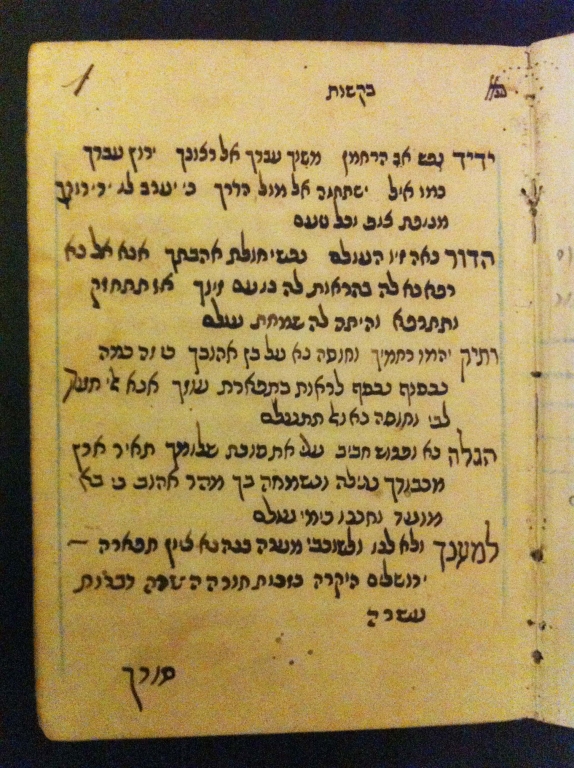 1
בקשות
ידיד נפש אב הרחמן משוך עבדך אל רצונך ירוץ עבדך
כמו איל ישתחוה אל מול הדרך כי יערב לו ידידותך
מנופת צוף וכל טעם
הדור נאה זיו העולם נפשי חולת אהבתך אנא אל נא
רפא נא לה בהראות לה נועם זיוך אז תתחזק
ותתרפא והיתה לה שמחת עולם
ותיק יהמו רחמיך וחוסה נא על בן אהובך כי זה כמה
נכסוף נכסף לראות בתפארת עוזך אנא אלי חמדת
לבי וחוסה נא ואל תתעלם
הגלה נא ופרוש חביב עלי את סוכת שלומך תאיר ארץ
מכבודך נגילה ונשמחה בך מהר אהוב כי בא
מועד וחננו כימי עולם
למענך ולא לנו
בנה נא ציון תפארה
ירושלים היקרה בזכות תורה
עשרה